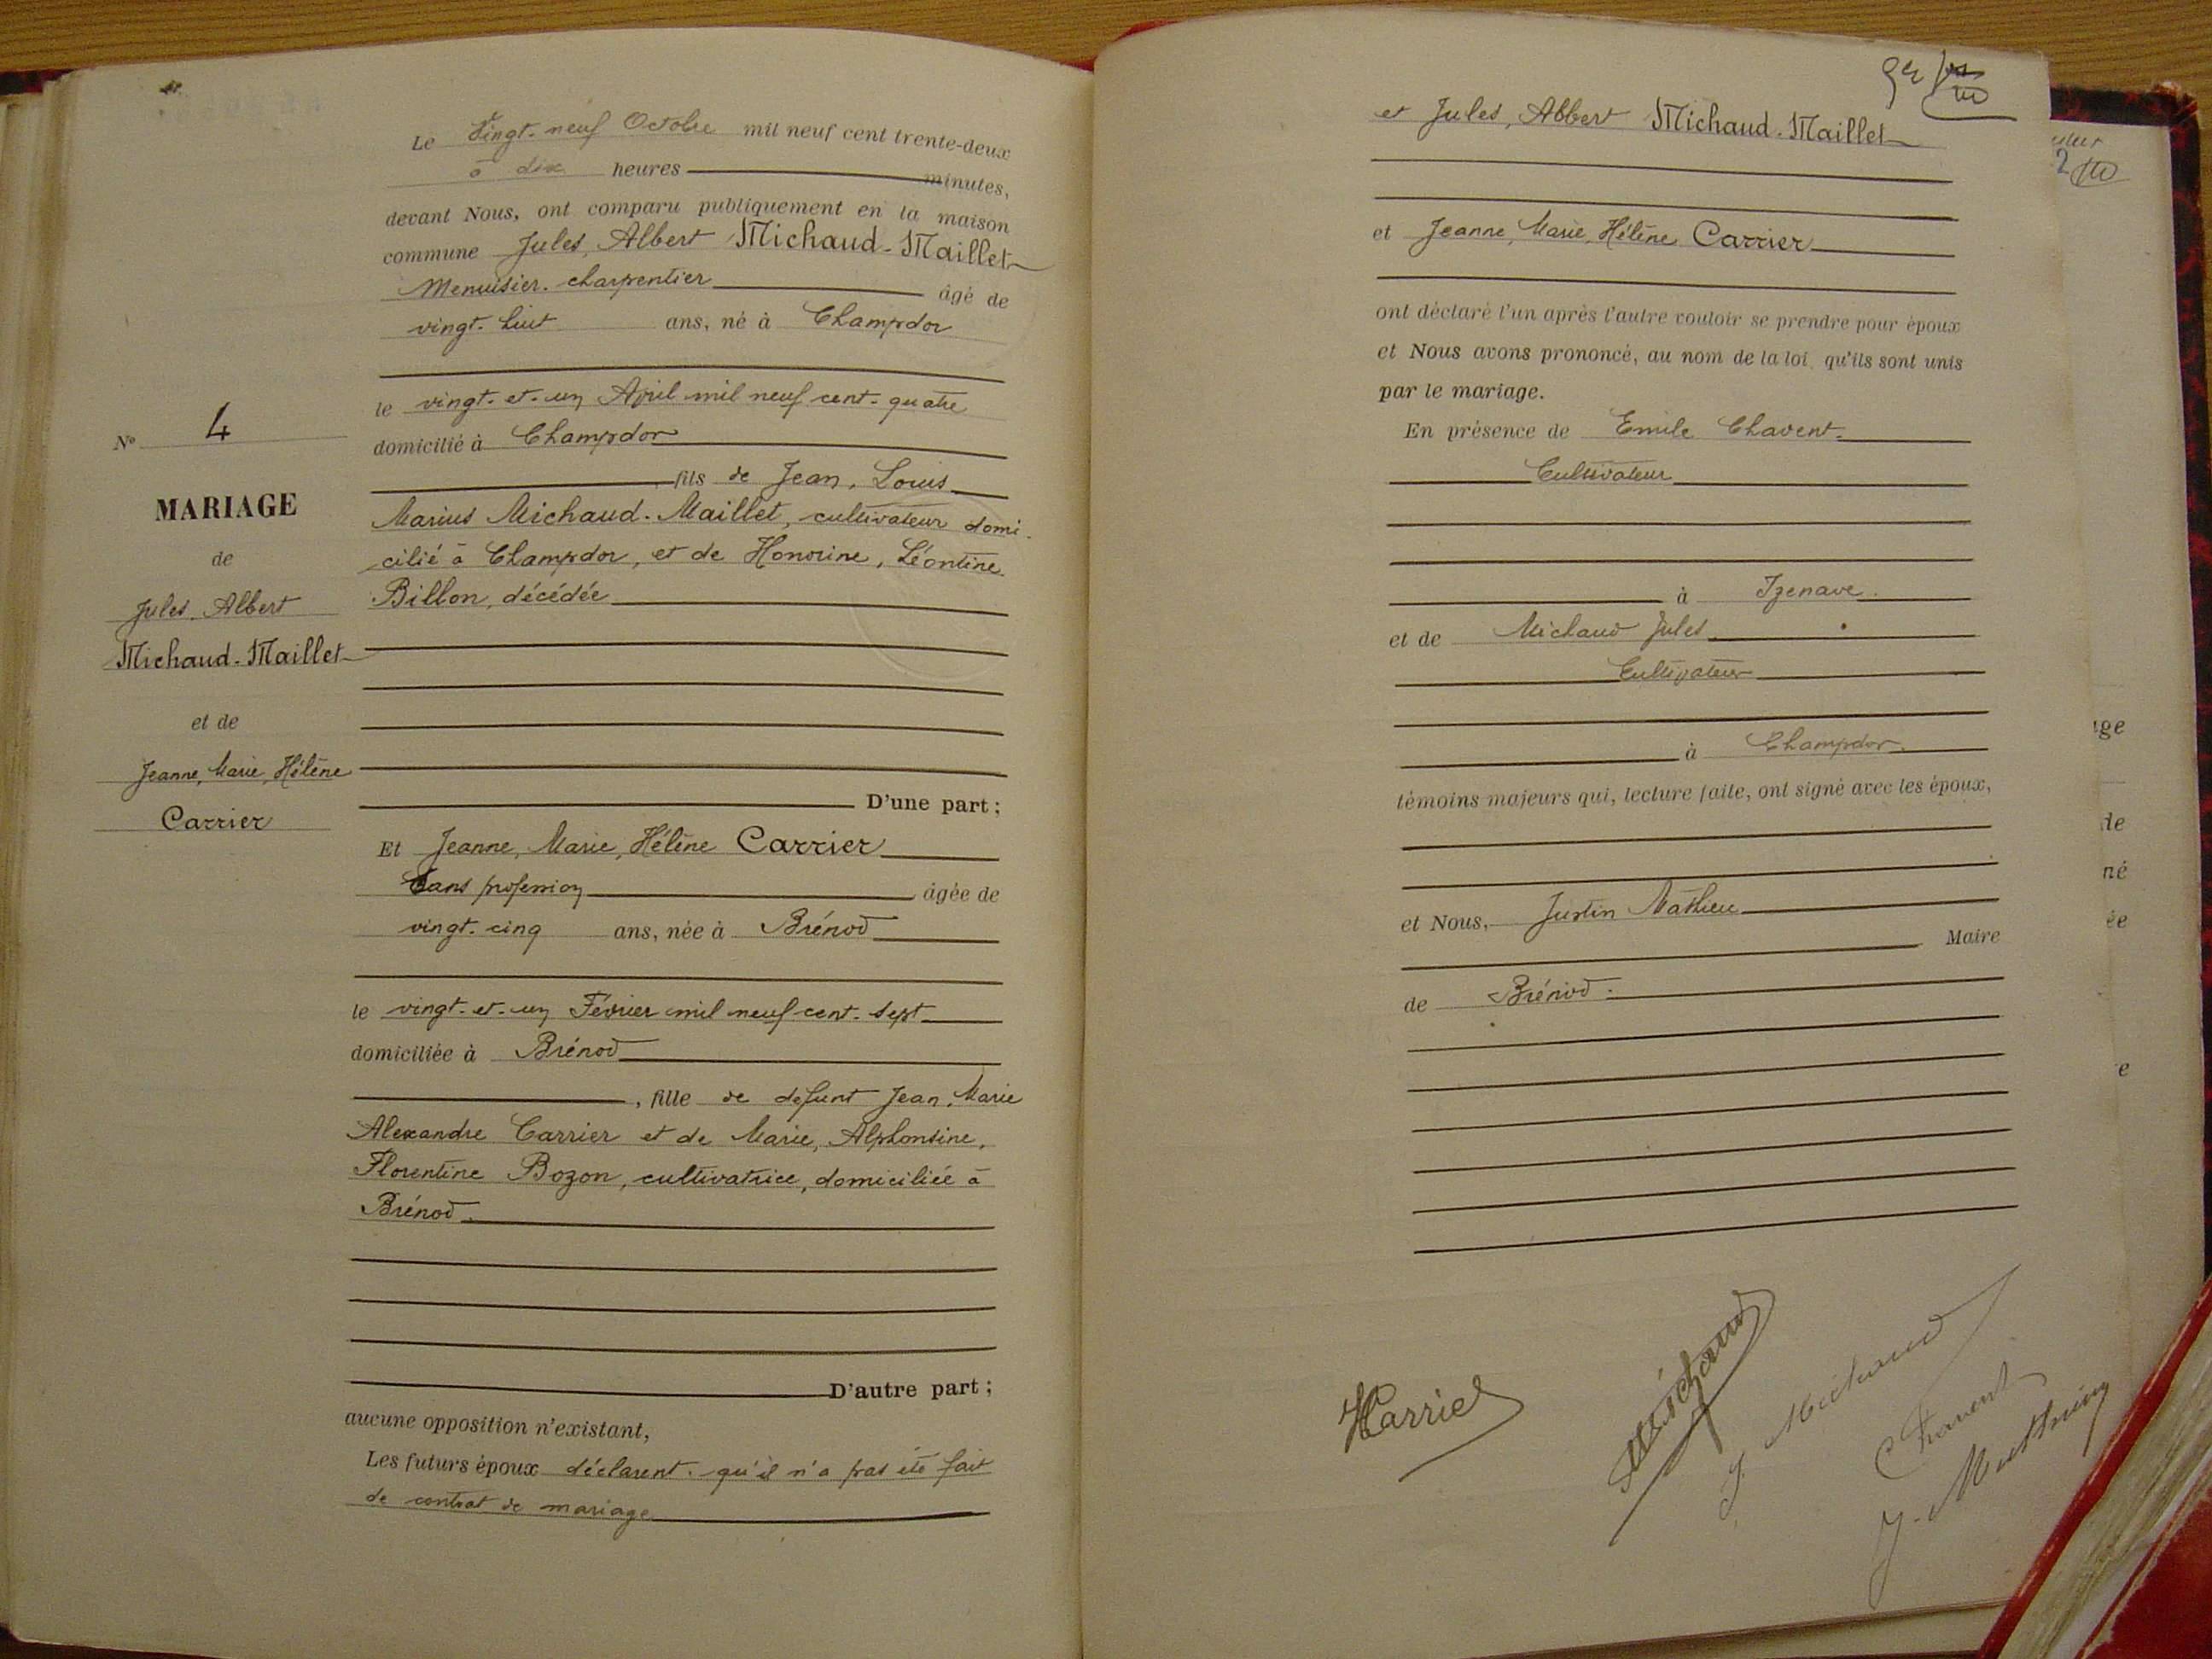 Le Vingt-neuf Octobre mil neuf cent trente-deux
à dix heures minutes,
devant Nous, ont comparu publiquement en la maison
commune Jules, Albert Michaud-Maillet
Menuisier-charpentier âgé de
vingt-huit ans, né à Champdor
le vingt-et-un Avril mil neuf cent-quatre
domicilié à Champdor
fils de Jean, Louis
Marius Michaud-Maillet, cultivateur domi-
cilié à Champdor, et de Honorine, Léontine
Billon, décédée
D'une part ;
Nº 4
MARIAGE
de
Jules, Albert
Michaud-Maillet
et de
Jeanne, Marie, Hélène
Carrier
Et Jeanne, Marie, Hélène Carrier
Sans profession âgée de
vingt-cinq ans, née à Brénod
le vingt-et-un Février mil neuf cent-sept
domiciliée à Brénod
, fille de defunt Jean, Marie
Alexandre Carrier et de Marie, Alphonsine,
Florentine Bozon, cultivatrice, domiciliée à
Brénod.
D'autre part ;
aucune opposition n'existant,
Les futurs époux déclarent qu'il n'a pas été fait
de contrat de mariage
et Jules, Albert Michaud-Maillet
et Jeanne, Marie, Hélène Carrier
ont déclaré l'un après l'autre vouloir se prendre pour époux
et Nous avons prononcé, au nom de la loi, qu'ils sont unis
par le mariage.
En présence de Emile Chavent
Cultivateur
à Izenave
et de Michaud Jules
Cultivateur
à Champdor
témoins majeurs qui, lecture faite, ont signé avec les époux,
et Nous, Justin Mathieu
Maire
de Brénod.
HCarrier
Michaud
J. Michaud
Chavent
J. Mathieu
2
age
de
né
ée
e